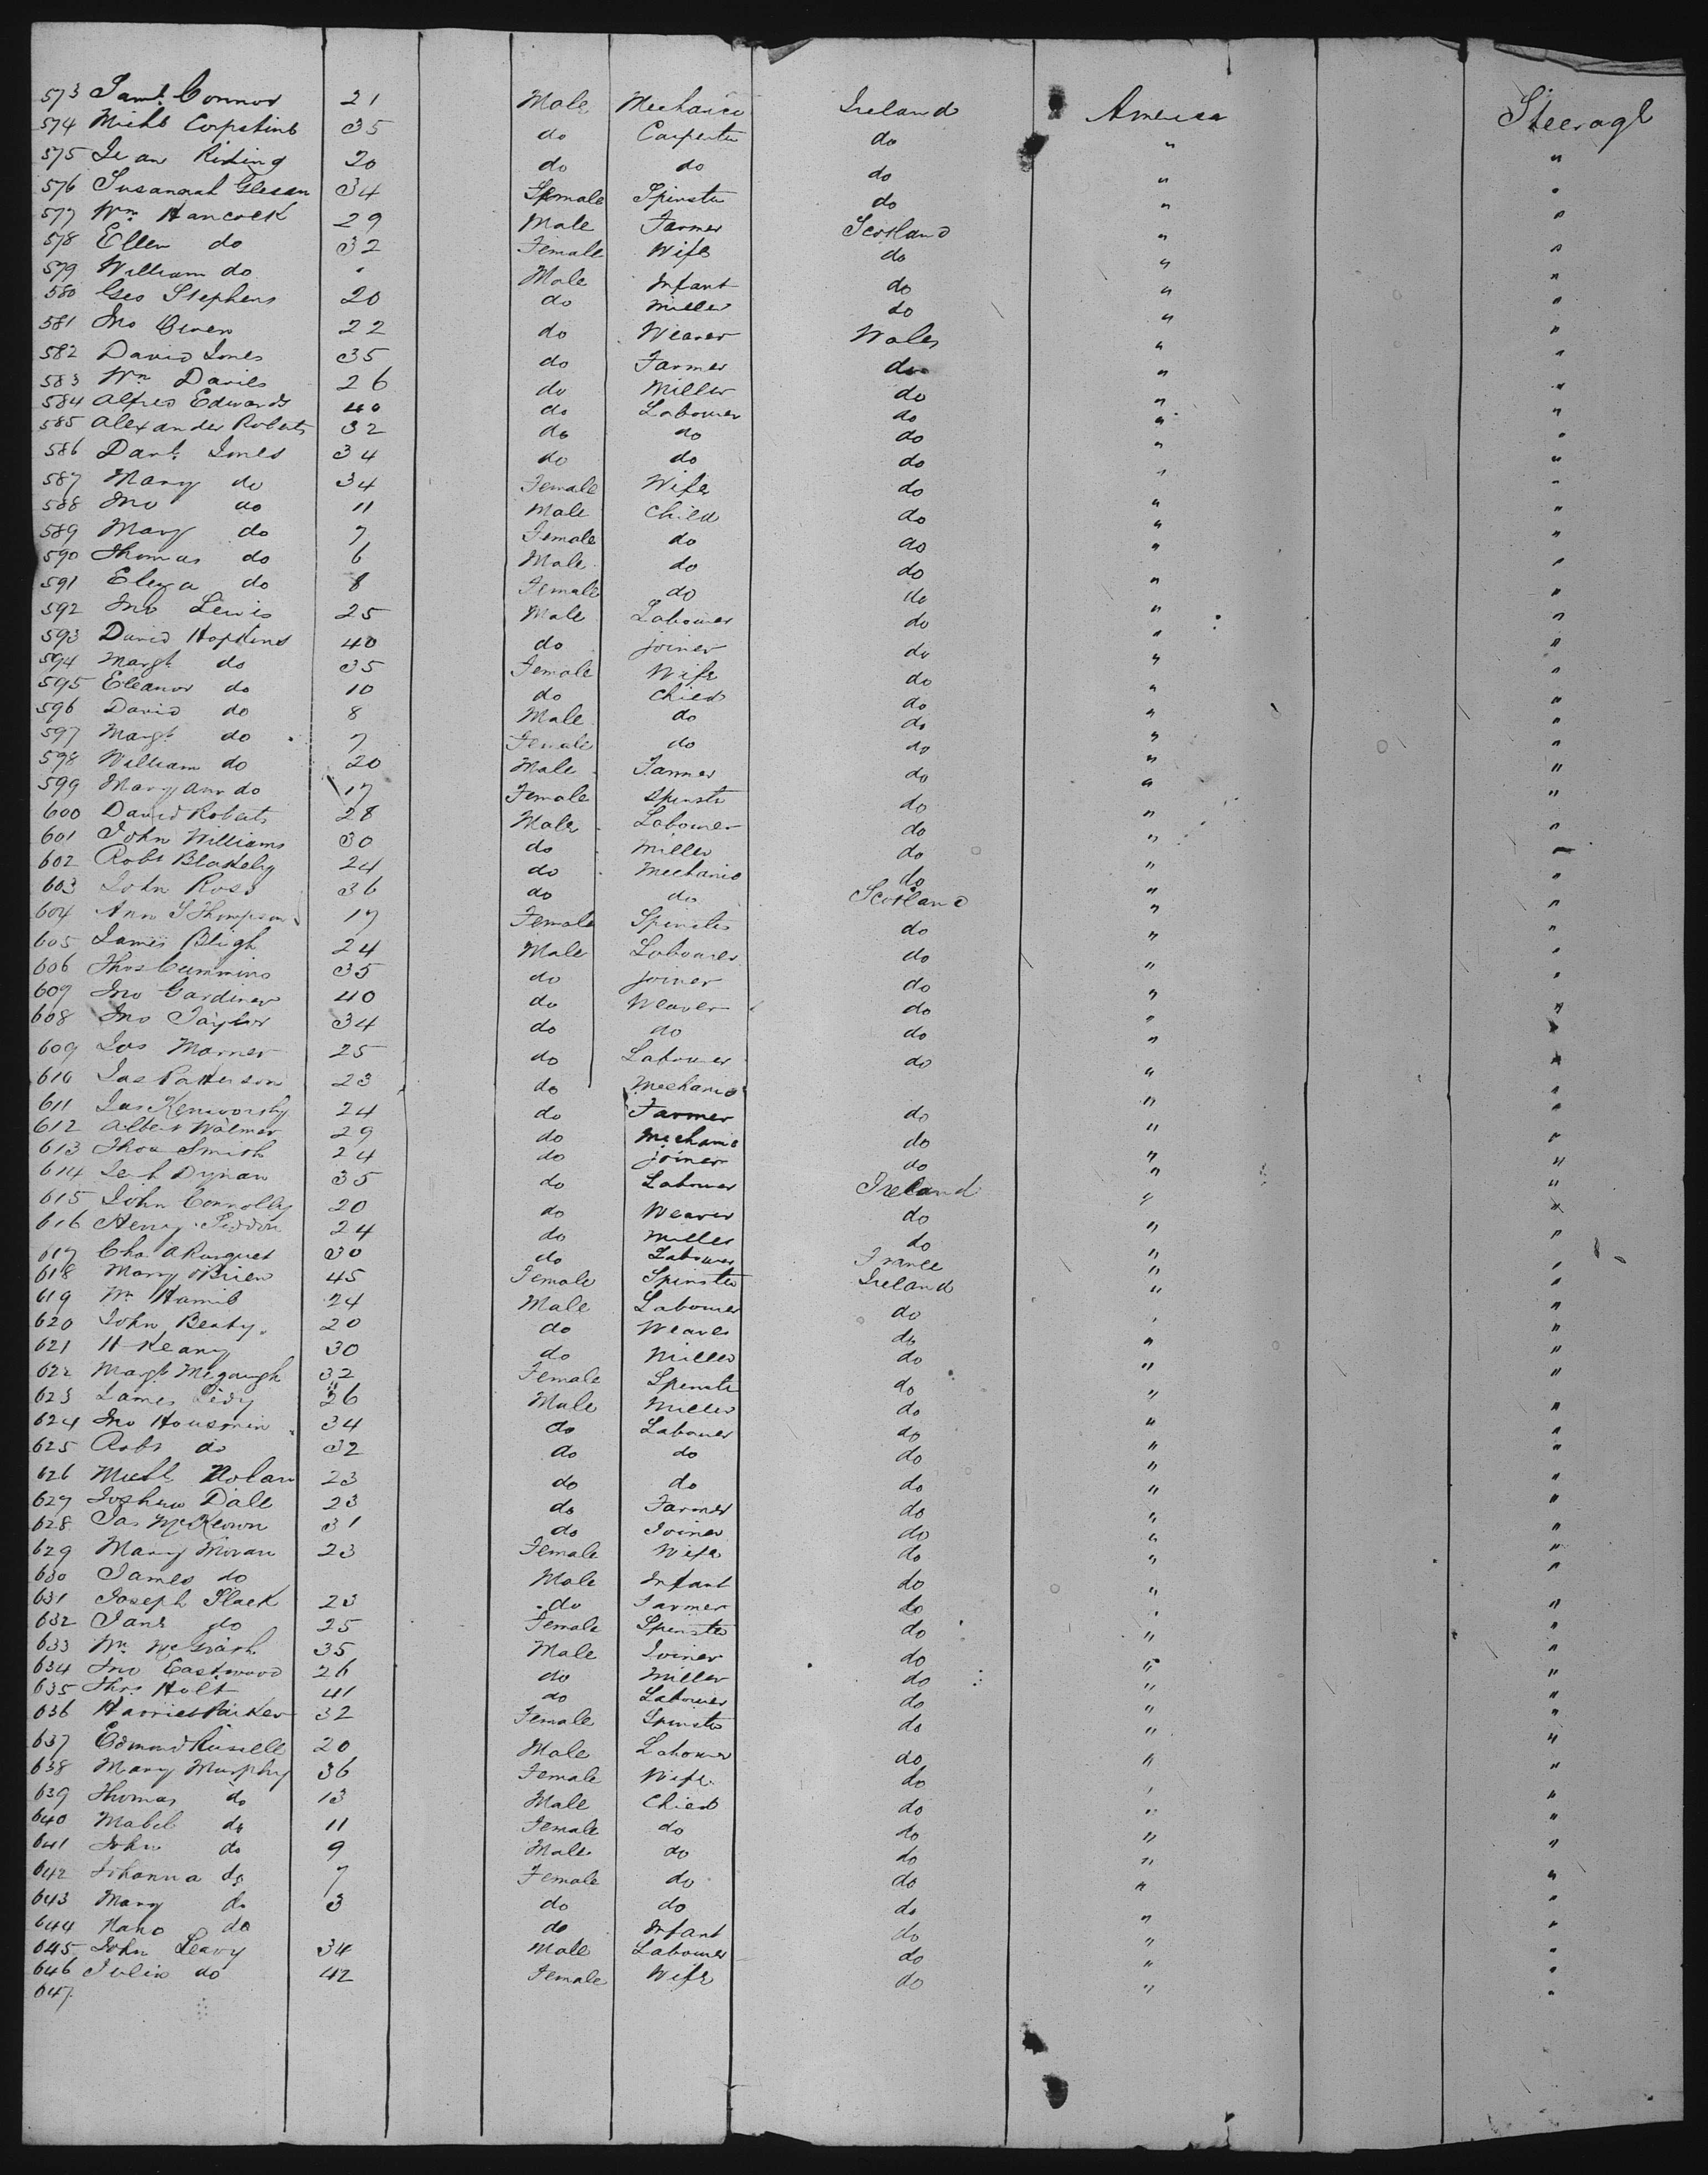 573 Saml. Connor 21 Male Mechanic Ireland America Steerage
574 Michl 35 do Carpenter do " "
575 20 do do do " "
576 Susannah Glesan 34 Female Spinster do " "
577 Wm Hancock 29 Male Farmer Scotland " "
578 Ellen do 32 Female Wife do " "
579 William do " Male Infant do " "
580 Geo Stephens 20 do Miller do " "
581 Jno Owen 22 do Weaver Wales " "
582 David Jones 35 do Farmer do " "
583 Wm Davies 26 do Miller do " "
584 Alfred Edwards 40 do Labourer do " "
585 Alexander Roberts 32 do do do " "
586 Danl. Jones 34 do do do " "
587 Mary do 34 Female Wife do " "
588 Jno do 11 Male Child do " "
589 Mary do 7 Female do do " "
590 Thomas do 6 Male do do " "
591 Eliza do 8 Female do do " "
592 Jno Lewis 25 Male Labourer do " "
593 David Hopkins 40 do joiner do " "
594 Margt do 35 Female Wife do " "
595 Eleanor do 10 do Child do " "
596 David do 8 Male do do " "
597 Margt do 7 Female do do " "
598 William do 20 Male Farmer do " "
599 Mary Ann do 17 Female Spinstr do " "
600 David Roberts 28 Male Labourer do " "
601 John Williams 30 do Miller do " "
602 Robt Blakely 24 do Mechanic do " "
603 John Ross 36 do do Scotland " "
604 Ann S Thompson 17 Female Spinster do " "
605 James Bligh 24 Male Labourer do " "
606 Thos Cummins 35 do joiner do " "
607 Jno Gardiner 40 do Weaver do " "
608 Jno Taylor 34 do do do " "
609 Jas Marner 25 do Labourer do " "
610 Jas Patterson 23 do Mechanic " "
611 Jas Kenworthy 24 do Farmer do " "
612 Albert Walmer 29 do Mechanic do " "
613 Thos Smith 24 do joiner do " "
614 Dynan 35 do Labourer Ireland " "
615 John Connolly 20 do Weaver do " "
616 Henry 24 do Miller do " "
617 Chas A 30 do Labourer France " "
618 Mary OBrien 45 Female Spinster Ireland " "
619 Wm Hamil 24 Male Labourer do " "
620 John Beaty 20 do Weaver do " "
621 H Keany 30 do Miller do " "
622 Margt Megaugh 32 Female Spinster do " "
623 James 26 Male Miller do " "
624 Jno Housmin 34 do Labourer do " "
625 Robt do 32 do do do " "
626 Michl Nolan 23 do do do " "
627 Joshua Dale 23 do Farmer do " "
628 Jas McKeown 31 do Joiner do " "
629 Mary Moran 23 Female Wife do " "
630 James do Male Infant do " "
631 Joseph Slack 23 do Farmer do " "
632 Jane do 25 Female Spinster do " "
633 Wm McGrath 35 Male Joiner do " "
634 Jno Eastwood 26 do Miller do " "
635 Thos Holt 41 do Labourer do " "
636 Harriet Parker 32 Female Spinster do " "
637 Edmond Russell 20 Male Labourer do " "
638 Mary Murphy 36 Female Wife do " "
639 Thomas do 13 Male Child do " "
640 Mabel do 11 Female do do " "
641 John do 9 Male do do " "
642 Johanna do 7 Female do do " "
643 Mary do 3 do do do " "
644 Nano do do Infant do " "
645 John Leavy 34 Male Labourer do " "
646 Julia do 42 Female Wife do " "
647